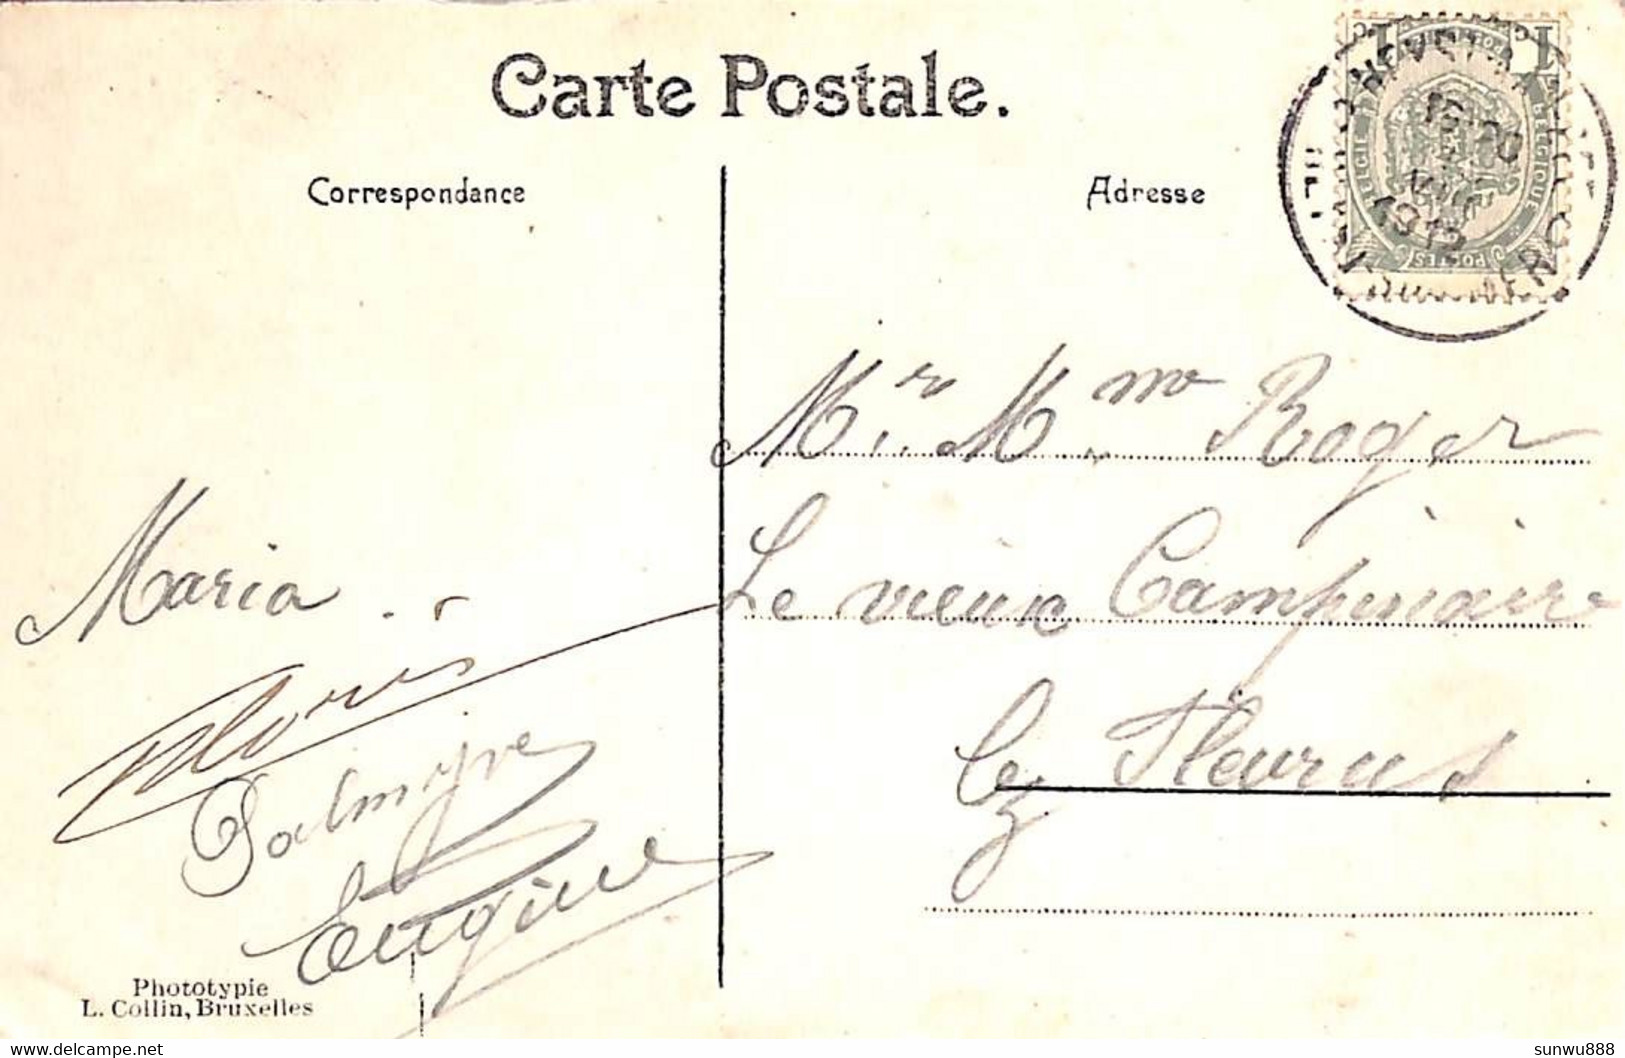 Carte Postale.
Correspondance
Adresse
1912
BELGIQUE
POSTES
Mr. Mme Roger
Le vieux Campinaire
lez Fleurus
Maria
Floris
Palmyre
Eugène
Phototypie
L. Collin, Bruxelles
delcampe.net
sunwu888